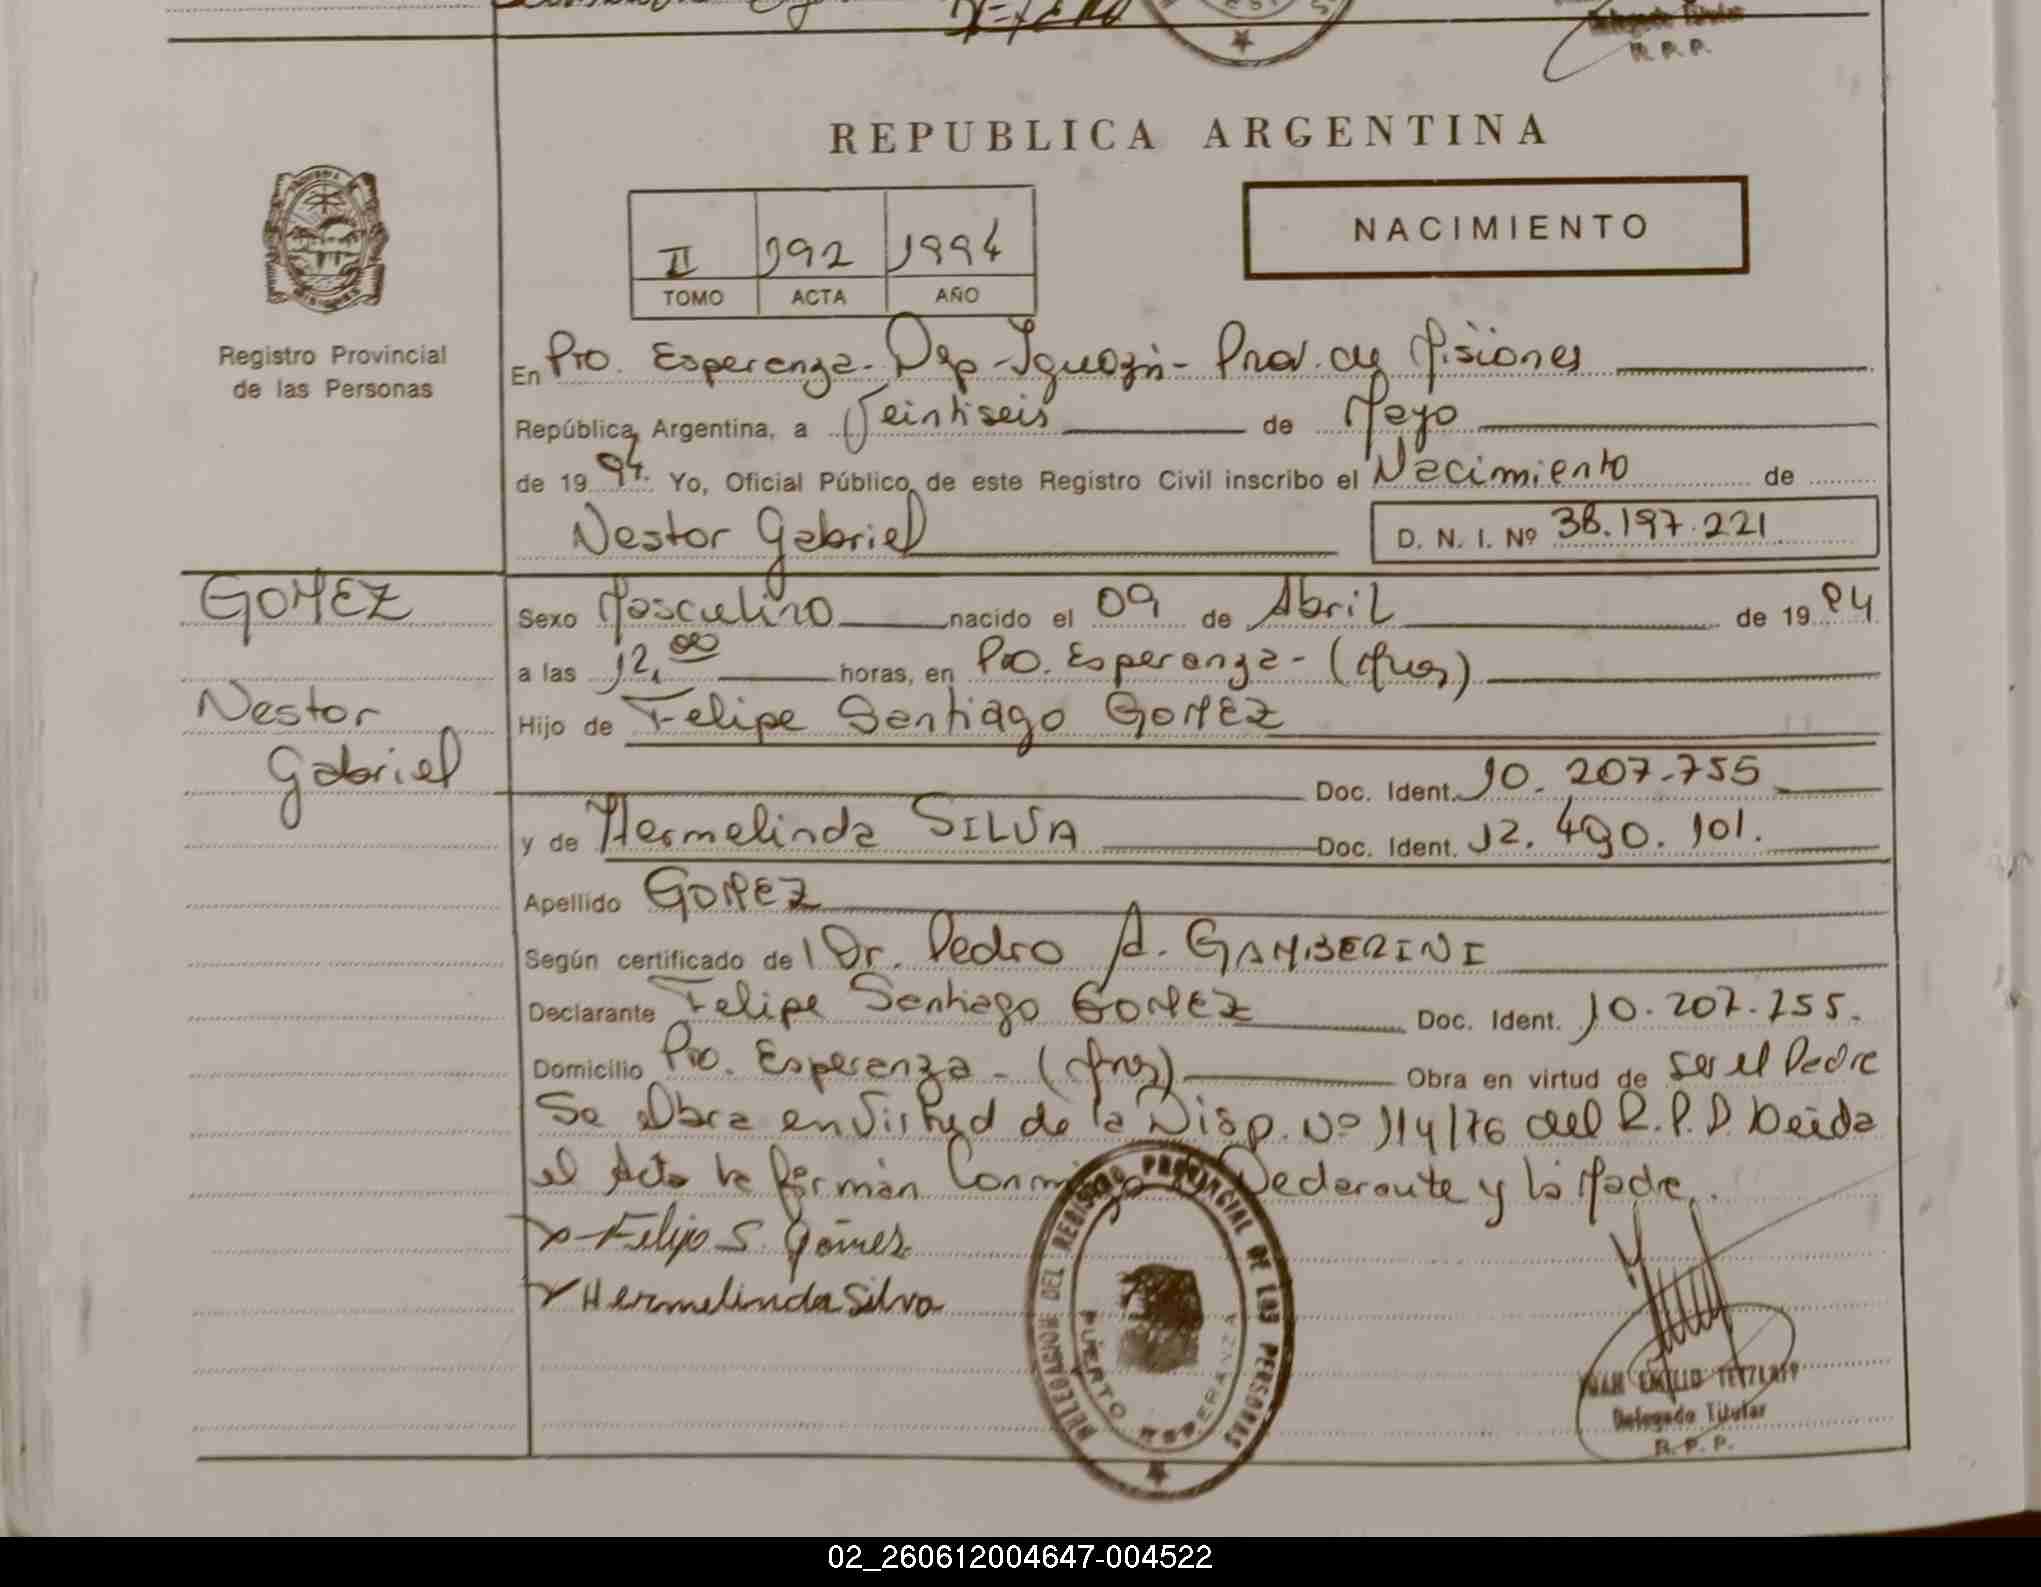 R.P.P.
REPUBLICA ARGENTINA
NACIMIENTO
II 192 1994
TOMO ACTA AÑO
Registro Provincial
de las Personas
En Pto. Esperanza - Dep - Iguazú - Prov. de Misiones
República Argentina, a Veintiseis de Mayo
de 19 94. Yo, Oficial Público de este Registro Civil inscribo el Nacimiento de
Nestor Gabriel D. N. I. Nº 38.197.221
GOMEZ
Nestor
Gabriel
Sexo Masculino nacido el 09 de Abril de 19 94
a las 12,00 horas, en Pto. Esperanza - (Mnes)
Hijo de Felipe Santiago GOMEZ
Doc. Ident. 10.207.755
y de Hermelinda SILVA Doc. Ident. 12.490.101.
Apellido GOMEZ
Según certificado de l Dr. Pedro A. GAMBERINI
Declarante Felipe Santiago GOMEZ Doc. Ident. 10.207.755.
Domicilio Pto. Esperanza - (Mnes) Obra en virtud de ser el Padre
Se Obra en Virtud de la Disp. Nº 114/76 del R.P.P. Leida
el Acta la firman Conmigo Declarante y la Madre.
Felipe S. Gómez
Hermelinda Silva
DELEGACION DEL REGISTRO PROVINCIAL DE LAS PERSONAS
PUERTO ESPERANZA
JUAN EMILIO
Delegado Titular
R.P.P.
02_260612004647-004522